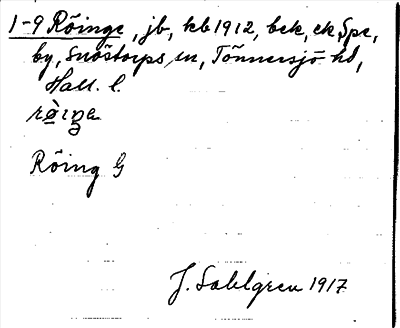 1-9 Röinge, jb, kb 1912, bek, ek, Spc,
by, Snöstorps sn, Tönnersjö hd,
Hall. l.
Röing G
J. Sahlgren 1917